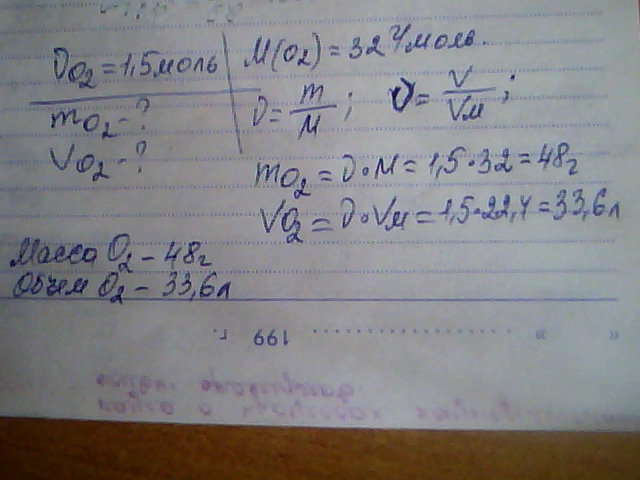 υO₂ = 1,5 моль
mO₂ - ?
VO₂ - ?
M(O₂) = 32 г/моль.
υ = m/M ; υ = V/Vм ;
mO₂ = υ • M = 1,5 • 32 = 48г
VO₂ = υ • Vм = 1,5 • 22,4 = 33,6л
Масса O₂ – 48г
Объем O₂ – 33,6л
« » .................... 199 г.